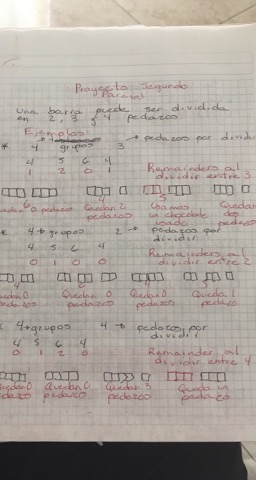 Proyecto Segundo
Parcial
una barra puede ser dividida
en 2, 3 y 4 pedazos
Ejemplos:
4 grupos 3 → pedazos por dividir
4 5 6 4
1 2 0 1
Remainders al
dividir entre 3
5
Quedan 2
pedazos
un chocolate
Quedan
dos
pedazos
4 → grupos 2 → pedazos por
dividir
4 5 6 4
0 1 0 0
Remainders al
dividir entre 2
Quedan 0
pedazos
Quedan 0
pedazos
Quedan 0
pedazos
Queda 1
pedazo
4 → grupos 4 → pedazos por
dividir
4 5 6 4
0 1 2 0
Remainder al
dividir entre 4
Quedan 0
pedazos
Quedan 0
pedazos
Quedan 3
pedazos
Queda un
pedazo